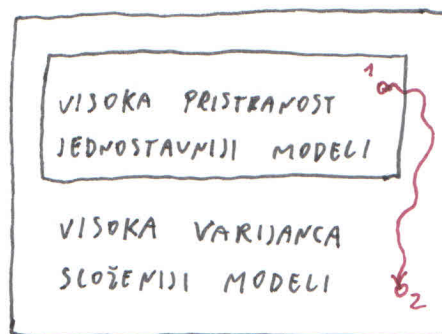 VISOKA PRISTRANOST
JEDNOSTAVNIJI MODELI
1
VISOKA VARIJANCA
SLOŽENIJI MODELI
2